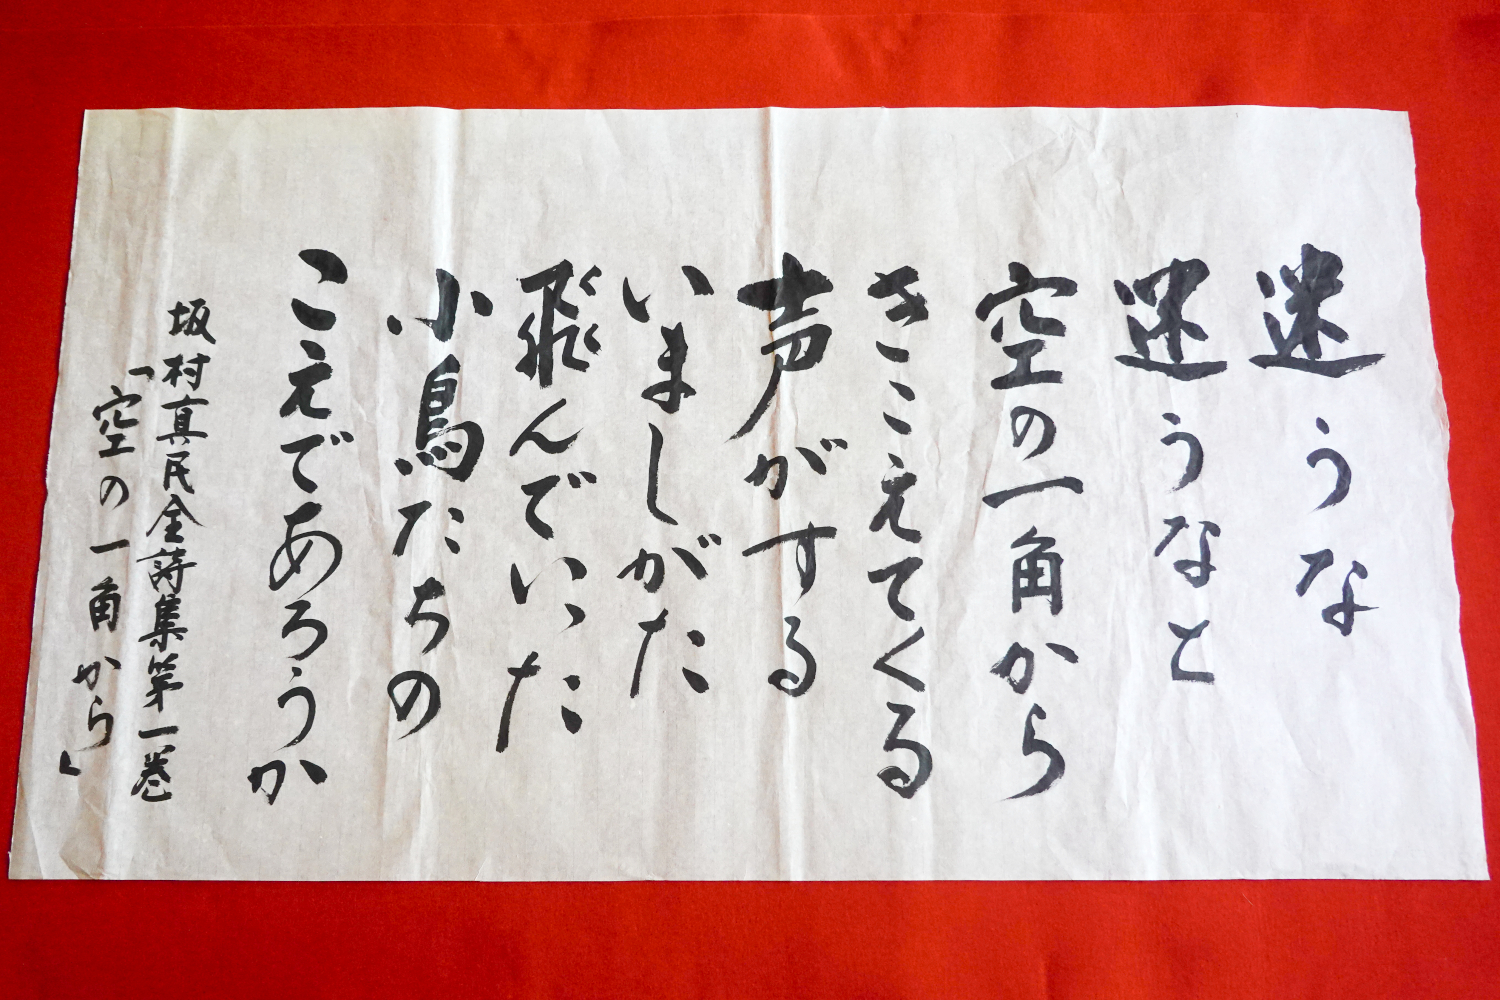 迷うな
迷うなと
空の一角から
きこえてくる
声がする
いましがた
飛んでいった
小鳥たちの
こえであろうか
坂村真民全詩集第一巻
「空の一角から」